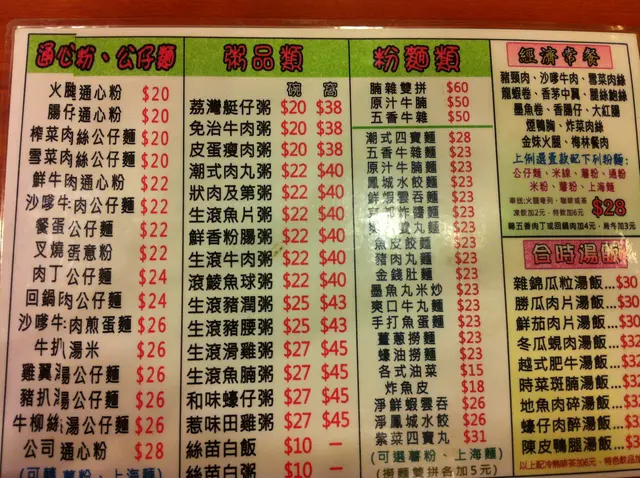 通心粉、公仔麵
火腿通心粉 $20
腸仔通心粉 $20
榨菜肉絲公仔麵 $20
雪菜肉絲公仔麵 $20
鮮牛肉通心粉 $22
沙嗲牛肉公仔麵 $22
餐蛋公仔麵 $22
叉燒蛋意粉 $22
肉丁公仔麵 $24
回鍋肉公仔麵 $24
沙嗲牛肉煎蛋麵 $26
牛扒湯米 $26
雞翼湯公仔麵 $26
豬扒湯公仔麵 $26
牛柳絲湯公仔麵 $26
公司通心粉 $28
(可轉薯粉、上海麵)
粥品類
碗 窩
荔灣艇仔粥 $20 $38
免治牛肉粥 $20 $38
皮蛋瘦肉粥 $20 $38
潮式肉丸粥 $22 $40
狀肉及第粥 $22 $40
生滾魚片粥 $22 $40
鮮香粉腸粥 $22 $40
生滾魚球粥 $22 $40
滾鯪魚球粥 $22 $40
生滾豬潤粥 $25 $43
生滾豬腰粥 $25 $43
生滾滑雞粥 $27 $45
生滾魚腩粥 $27 $45
和味蠔仔粥 $27 $45
惹味田雞粥 $27 $45
絲苗白飯 $10 —
絲苗白粥 $10 —
粉麵類
腩雜雙拼 $60
原汁牛腩 $50
五香牛雜 $50
潮式四寶麵 $28
五香牛雜麵 $23
原汁牛腩麵 $23
鳳城水餃麵 $23
鮮蝦雲吞麵 $23
炸醬麵 $23
丸麵 $23
魚皮餃麵 $23
豬肉丸麵 $23
金錢肚麵 $23
墨魚丸米炒 $23
爽口牛丸麵 $23
手打魚蛋麵 $23
薑蔥撈麵 $23
蠔油撈麵 $23
各式油菜 $15
炸魚皮 $18
淨鮮蝦雲吞 $26
淨鳳城水餃 $26
紫菜四寶丸 $31
(可選薯粉、上海麵)
(撈麵雙拼各加5元)
經濟常餐
豬頸肉、沙嗲牛肉、雪菜肉絲
龍蝦卷、香茅中翼、腿絲鮑絲
墨魚卷、香腸仔、大紅腸
煙鴨胸、炸菜肉絲
金妹火腿、梅林餐肉
上例選壹款配下列粉麵:
公仔麵、米線、薯粉、通粉
米粉、薯粉、上海麵
$28
凍飲加2元、特飲加6元
合時湯飯
雜錦瓜粒湯飯...$30
勝瓜肉片湯飯...$30
鮮茄肉片湯飯...$30
冬瓜蜆肉湯飯...$32
越式肥牛湯飯...$32
時菜斑腩湯飯...$32
地魚肉碎湯飯...$32
蠔仔肉碎湯飯...$32
陳皮鴨腿湯飯...$32